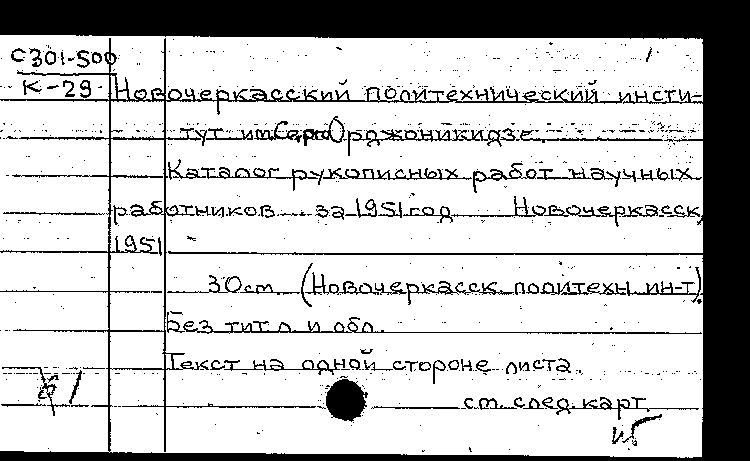 С301-500
К-29
Новочеркасский политехнический инсти-
тут им. Серго Орджоникидзе.
Каталог рукописных работ научных
работников... за 1951 год Новочеркасск,
1951
30 ст. (Новочеркасск. политехн. ин-т).
Без тит. л. и обл.
Текст на одной стороне листа.
ст. след. карт.
1